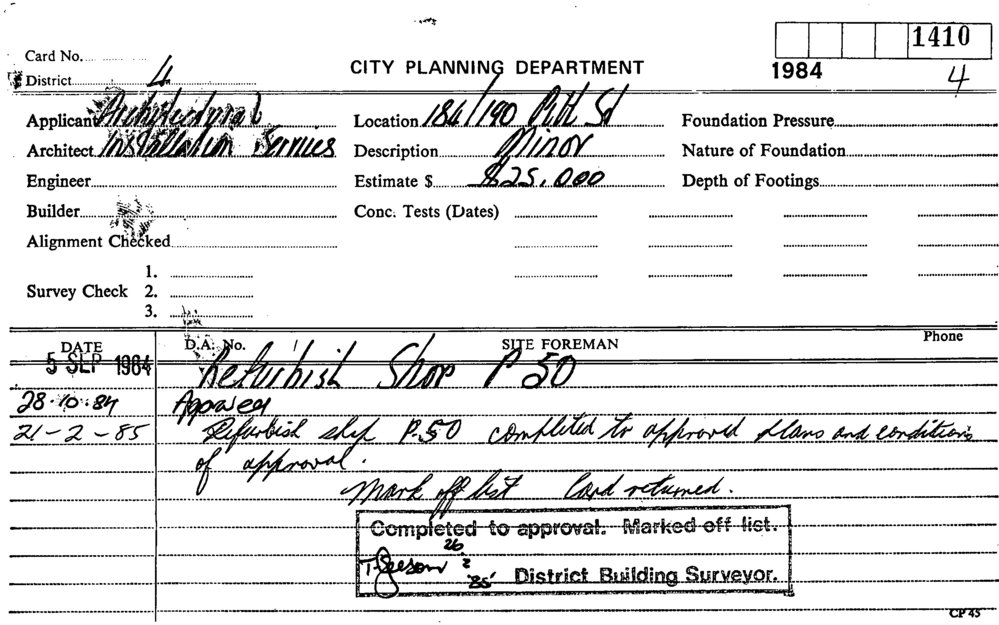 1410
Card No.
CITY PLANNING DEPARTMENT
1984
4
District 4
Applicant Architectural
Location 184/190 Pitt St
Foundation Pressure
Architect Installation Services
Description Minor
Nature of Foundation
Engineer
Estimate $ $25,000
Depth of Footings
Builder
Conc. Tests (Dates)
Alignment Checked
1.
Survey Check 2.
3.
DATE D.A. No. SITE FOREMAN Phone
5 SEP 1984 Refurbish Shop P 50
28.10.84 Approved
21-2-85 Refurbish shop P.50 completed to approved plans and conditions
of approval.
Mark off list Card returned.
Completed to approval. Marked off list.
26
2
85 District Building Surveyor.
CP 45